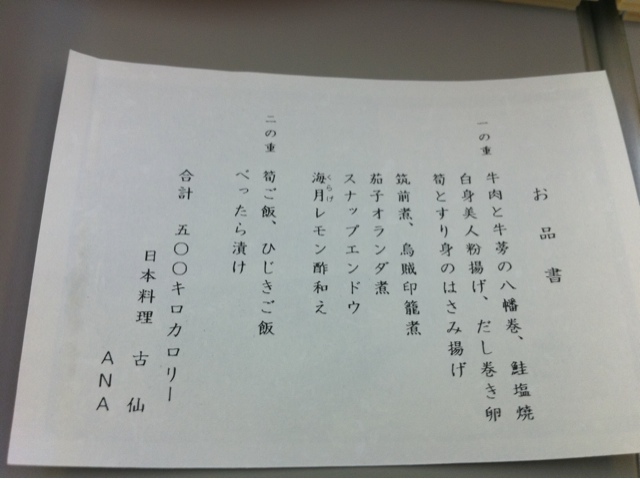 お品書
一の重 牛肉と牛蒡の八幡巻、鮭塩焼
白身美人粉揚げ、だし巻き卵
筍とすり身のはさみ揚げ
筑前煮、烏賊印籠煮
茄子オランダ煮
スナップエンドウ
海月レモン酢和え
くらげ
二の重 筍ご飯、ひじきご飯
べったら漬け
合計 五〇〇キロカロリー
日本料理 古仙
ANA